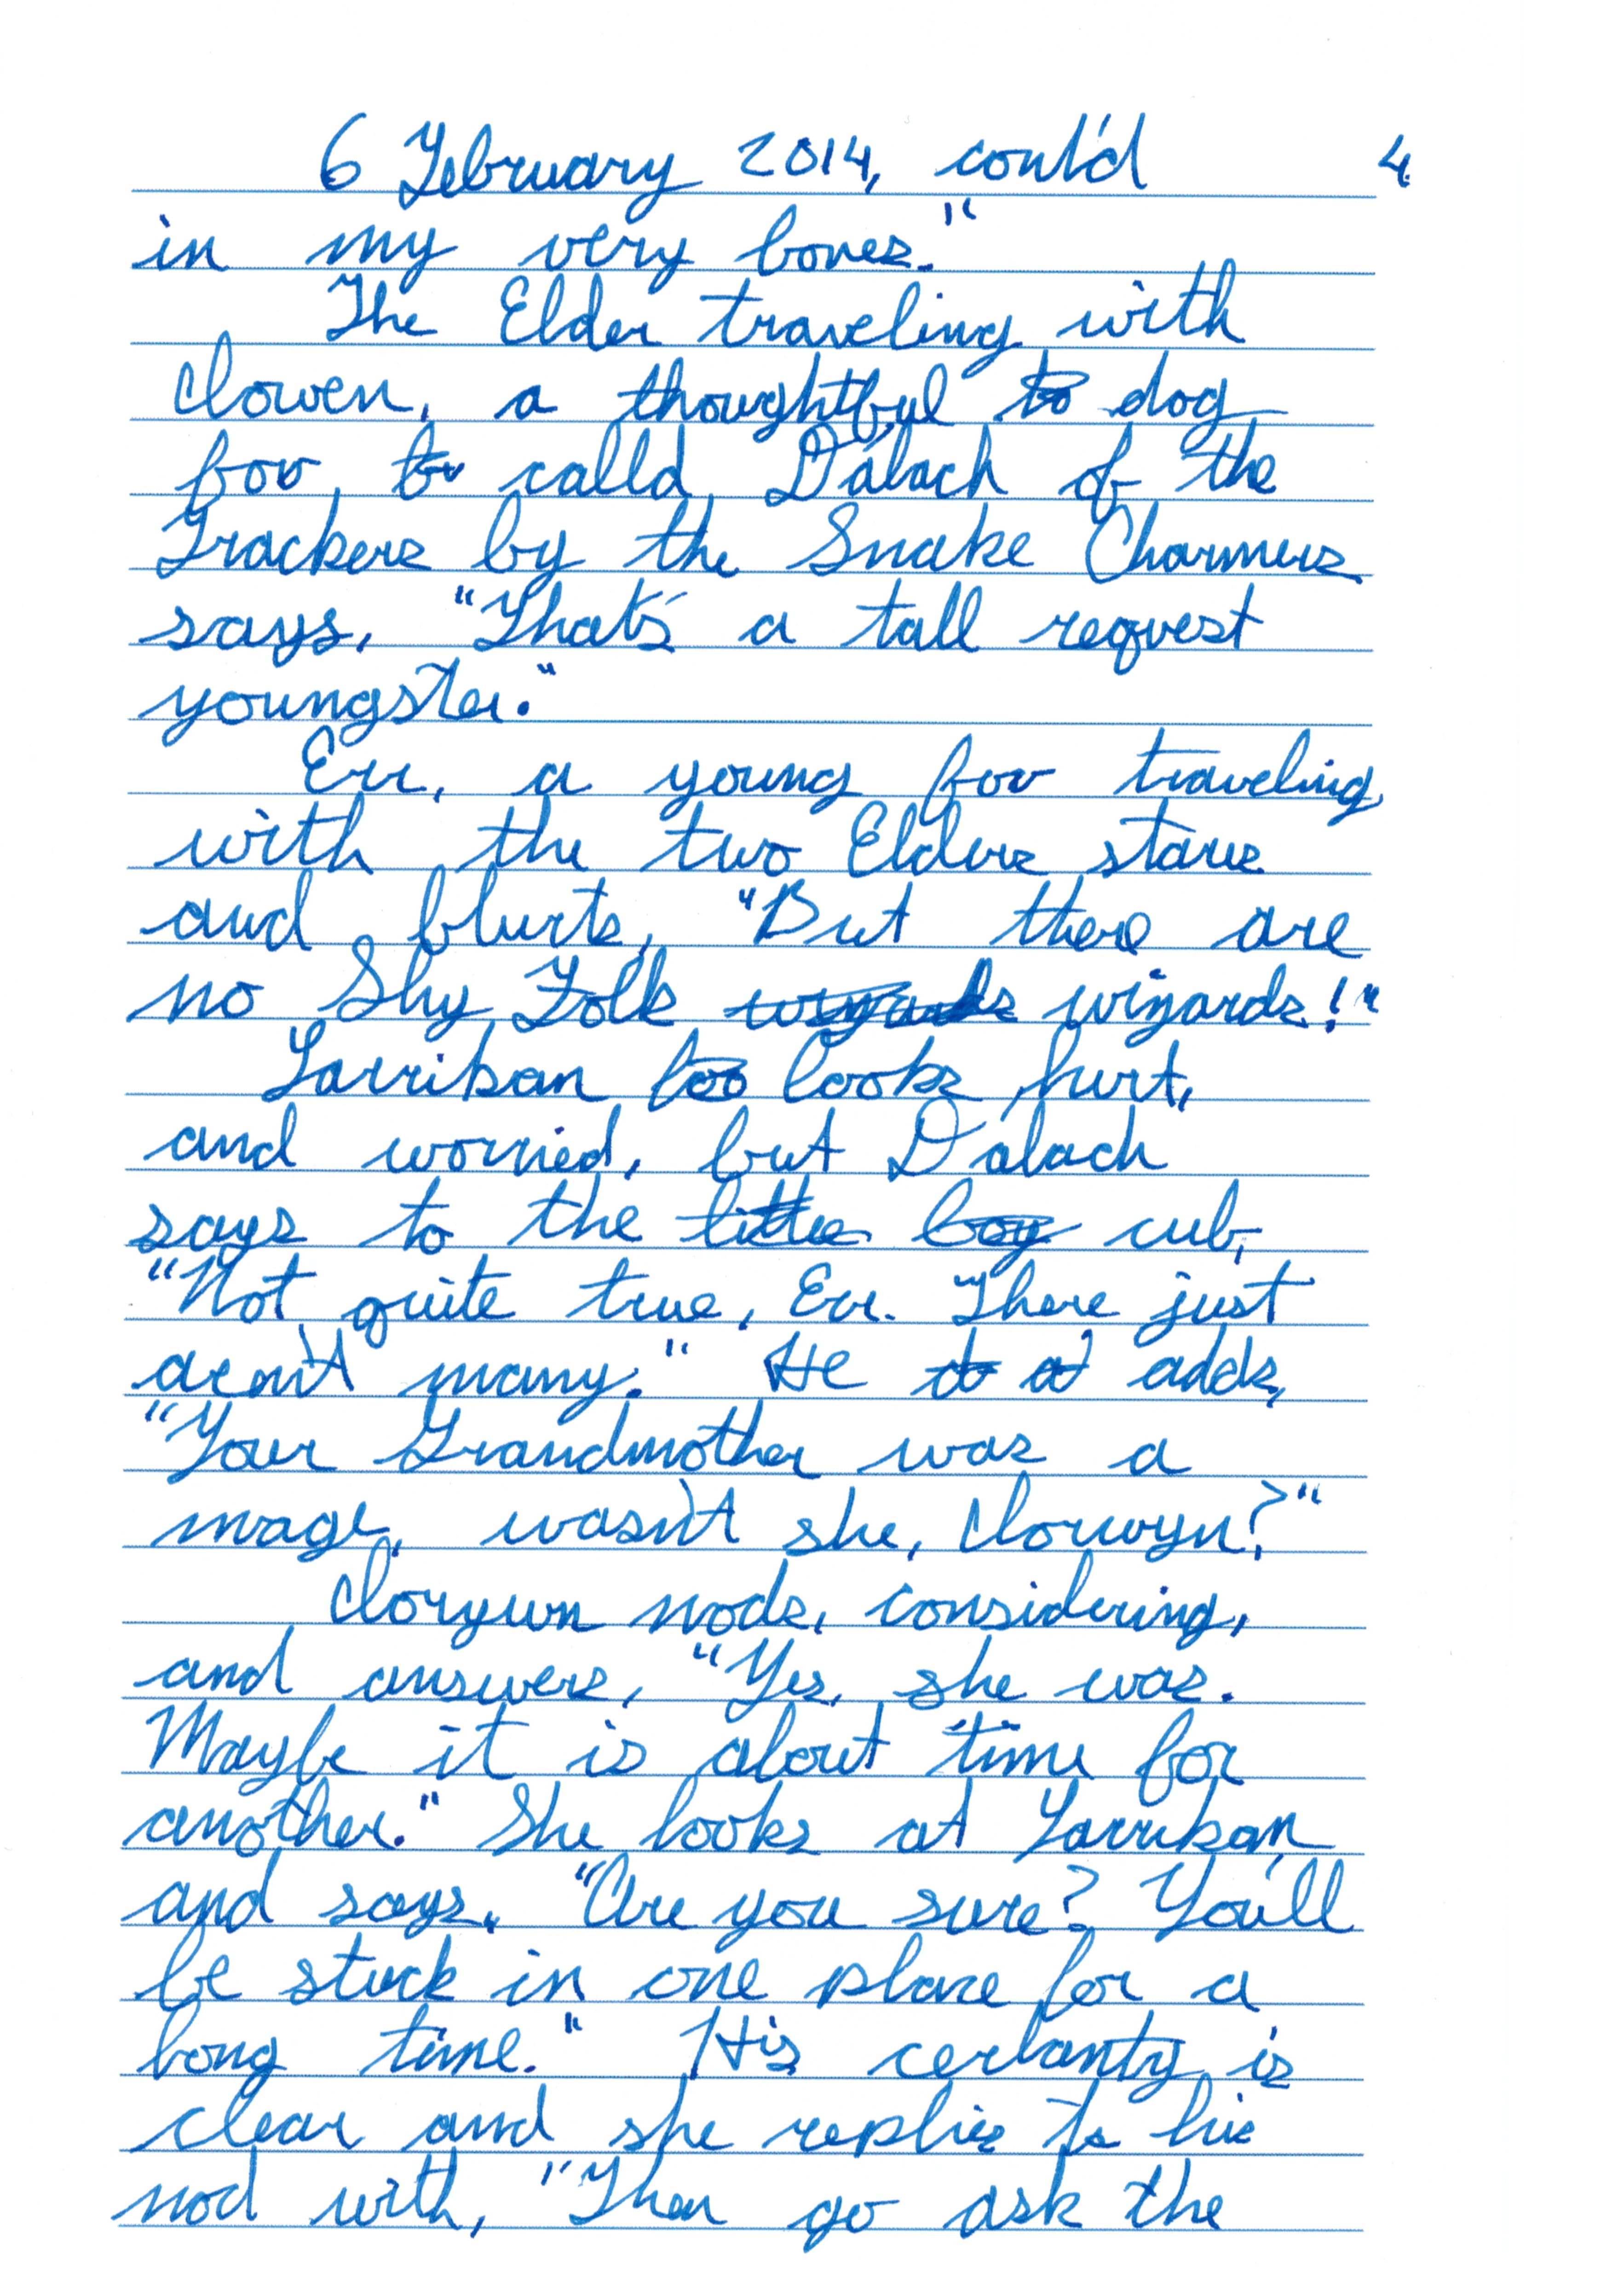 6 February 2014, cont'd 4.
in my very bones."
The Elder traveling with
Clowen, a thoughtful to dog
fox, to calld Dalach of the
Trackers by the Snake Charmers
says, "That's a tall request
youngster."
Err, a young fox traveling
with the two Elders stares
and blurts, "But there are
no Shy Folk wizards wizards!"
Larrikan loo looks hurt,
and worried, but Dalach
says to the little boy cub,
"Not quite true, Err. There just
aren't many." He a a adds,
"Your Grandmother was a
mage, wasn't she, Clorwyn?"
Clorywn nods, considering,
and answers, "Yes, she was.
Maybe it is about time for
another." She looks at Larrikan
and says, "Are you sure? You'll
be stuck in one place for a
long time." His certanty is
clear and she replies to his
nod with, "Then go ask the